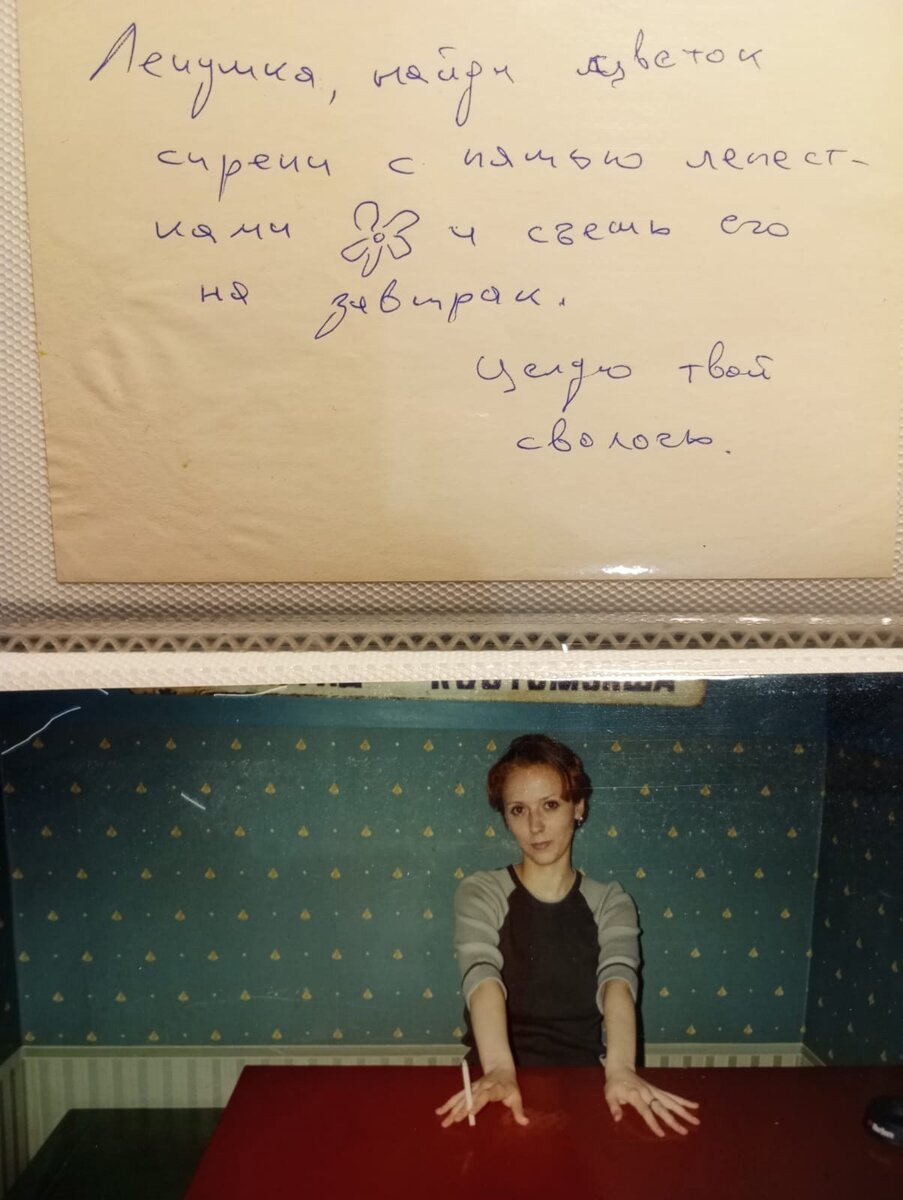 Ленушка, найди цветок
сирени с пятью лепест-
ками и съешь его
на завтрак.
Целую твой
сволочь.
КОСТОМУКША